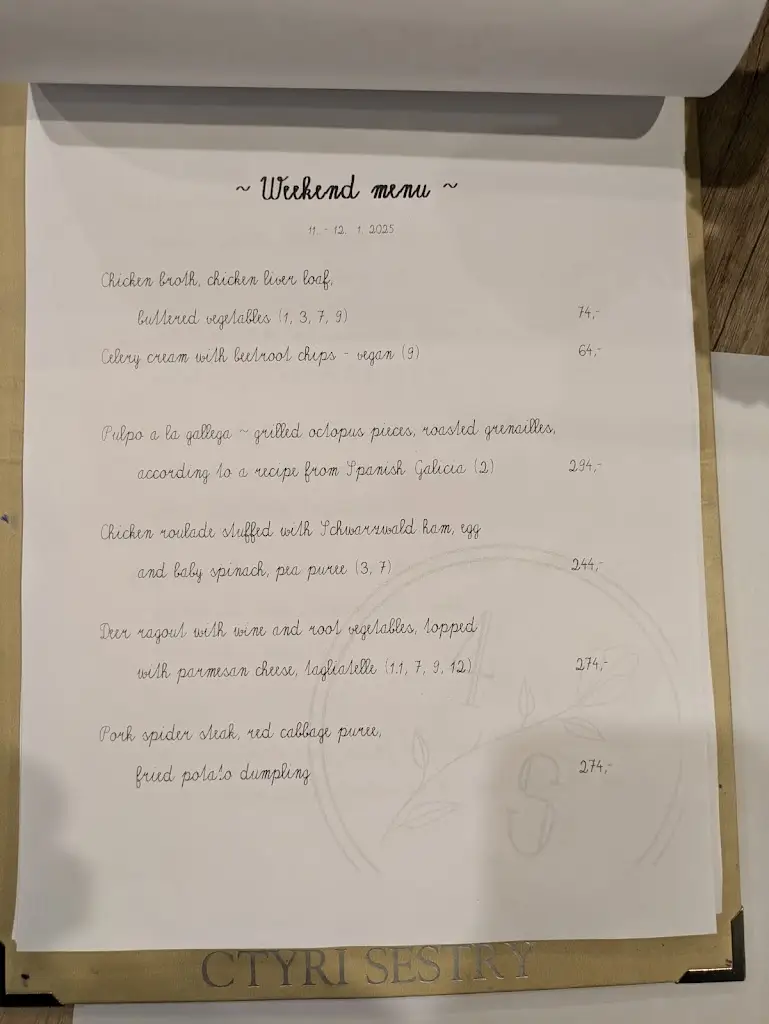 ~ Weekend menu ~
11. - 12. 1. 2025
Chicken broth, chicken liver loaf,
buttered vegetables (1, 3, 7, 9) 74,-
Celery cream with beetroot chips - vegan (9) 64,-
Pulpo a la gallega ~ grilled octopus pieces, roasted grenailles,
according to a recipe from Spanish Galicia (2) 294,-
Chicken roulade stuffed with Schwarzwald ham, egg
and baby spinach, pea puree (3, 7) 244,-
Deer ragout with wine and root vegetables, topped
with parmesan cheese, tagliatelle (1.1, 7, 9, 12) 274,-
Pork spider steak, red cabbage puree,
fried potato dumpling 274,-
4
S
CTYRI SESTRY